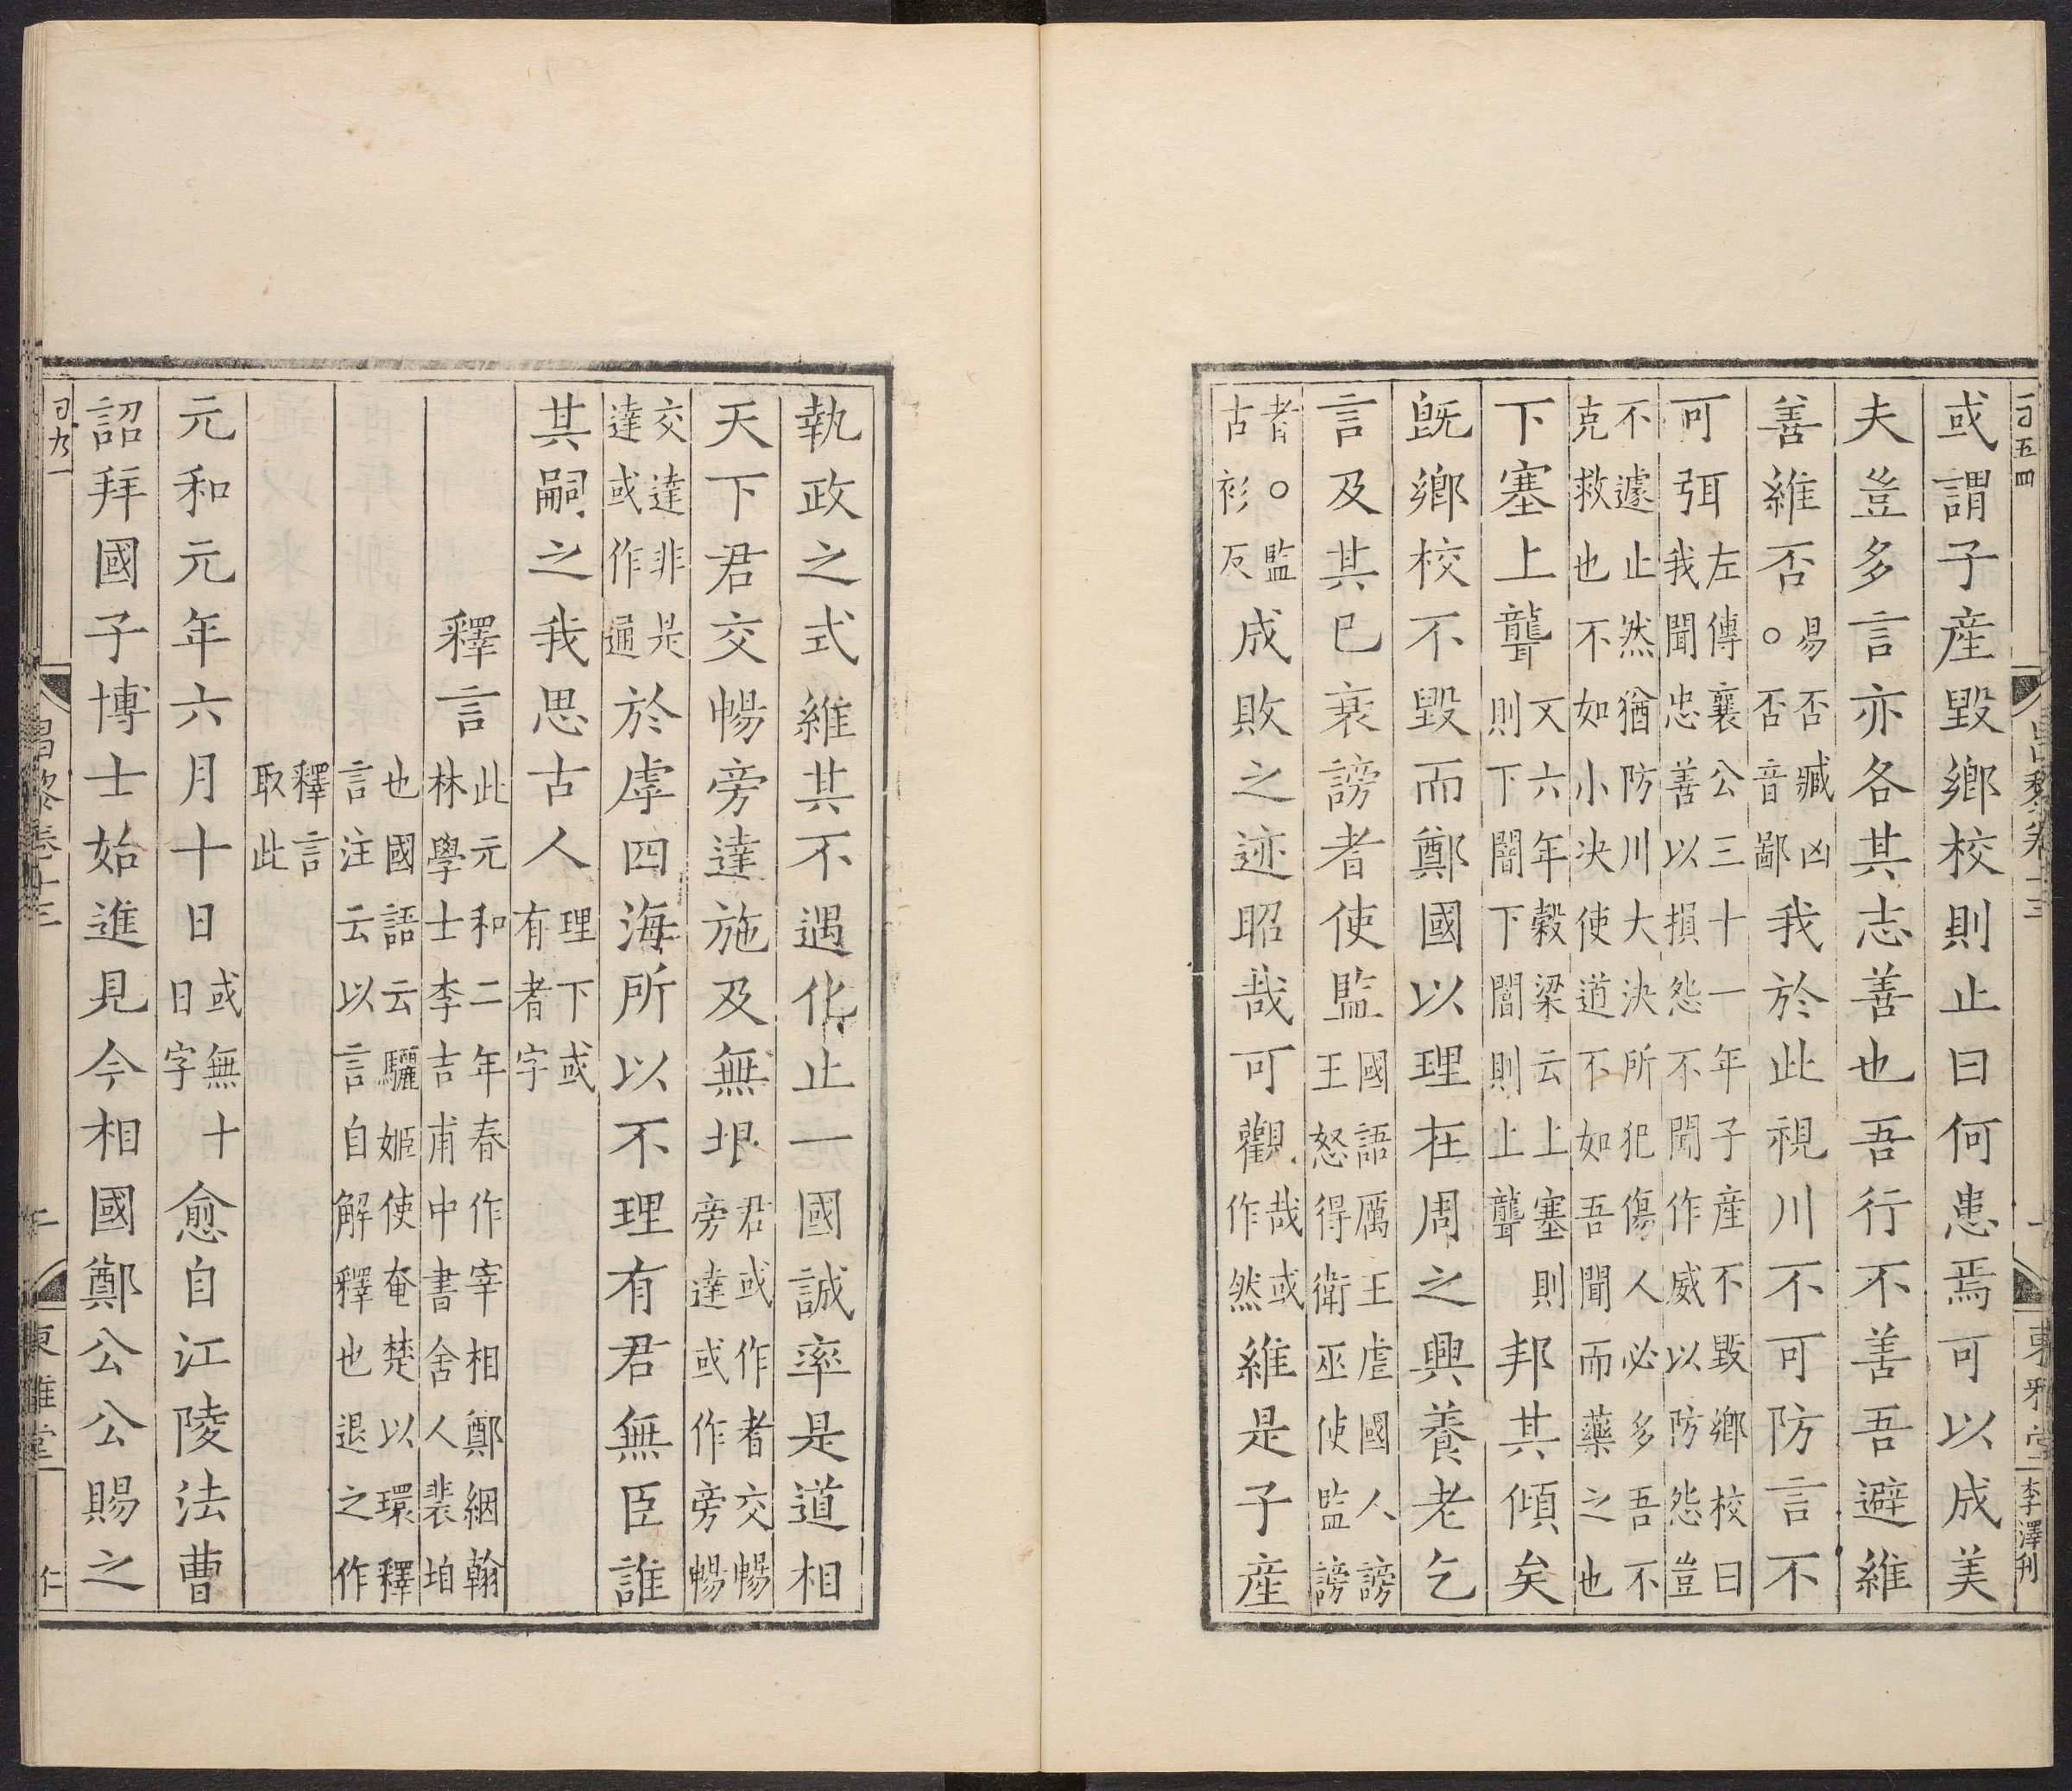 或謂子産毀鄉校則止曰何患焉可以成美
夫豈多言亦各其志善也吾行不善吾避維
善維否易否臧凶。否音鄙我於此視川不可防言不
可弭左傳襄公三十一年子産不毀鄉校曰我聞忠善以損怨不聞作威以防怨豈
不遽止然猶防川大決所犯傷人必多吾不克救也不如小決使道不如吾聞而藥之也
下塞上聾文六年穀梁云上塞則下闇下闇則上聾邦其傾矣
既鄉校不毀而鄭國以理在周之興養老乞
言及其已衰謗者使監國語厲王虐國人謗王怒得衛巫使監謗
者。監古衫反成敗之迹昭哉可觀哉或作然維是子産
執政之式維其不遇化止一國誠率是道相
天下君交暢旁達施及無垠君或作者交暢旁達或作旁暢
交達非是達或作通於虖四海所以不理有君無臣誰
其嗣之我思古人理下或有者字
釋言此元和二年春作宰相鄭絪翰林學士李吉甫中書舍人裴垍
也國語云驪姬使奄楚以環釋言注云以言自解釋也退之作
釋言取此
元和元年六月十日或無十日字愈自江陵法曹
詔拜國子博士始進見今相國鄭公公賜之
昌黎卷十三
東雅堂
仁
昌黎卷十三
東雅堂
李澤刊